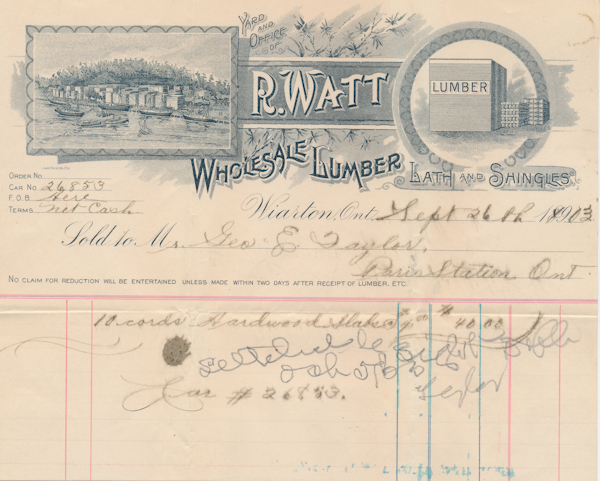 YARD
AND
OFFICE
OF
R. WATT
LUMBER
WHOLESALE LUMBER
LATH AND SHINGLES
ORDER No.
CAR No. 26853
F.O.B. Here
TERMS Net Cash
Wiarton, Ont. Sept 26th 1903
Sold to Mr. Geo E. Taylor,
Paris Station, Ont
NO CLAIM FOR REDUCTION WILL BE ENTERTAINED UNLESS MADE WITHIN TWO DAYS AFTER RECEIPT OF LUMBER, ETC.
10 cords Hardwood Slabs 40.00
Car # 26853.